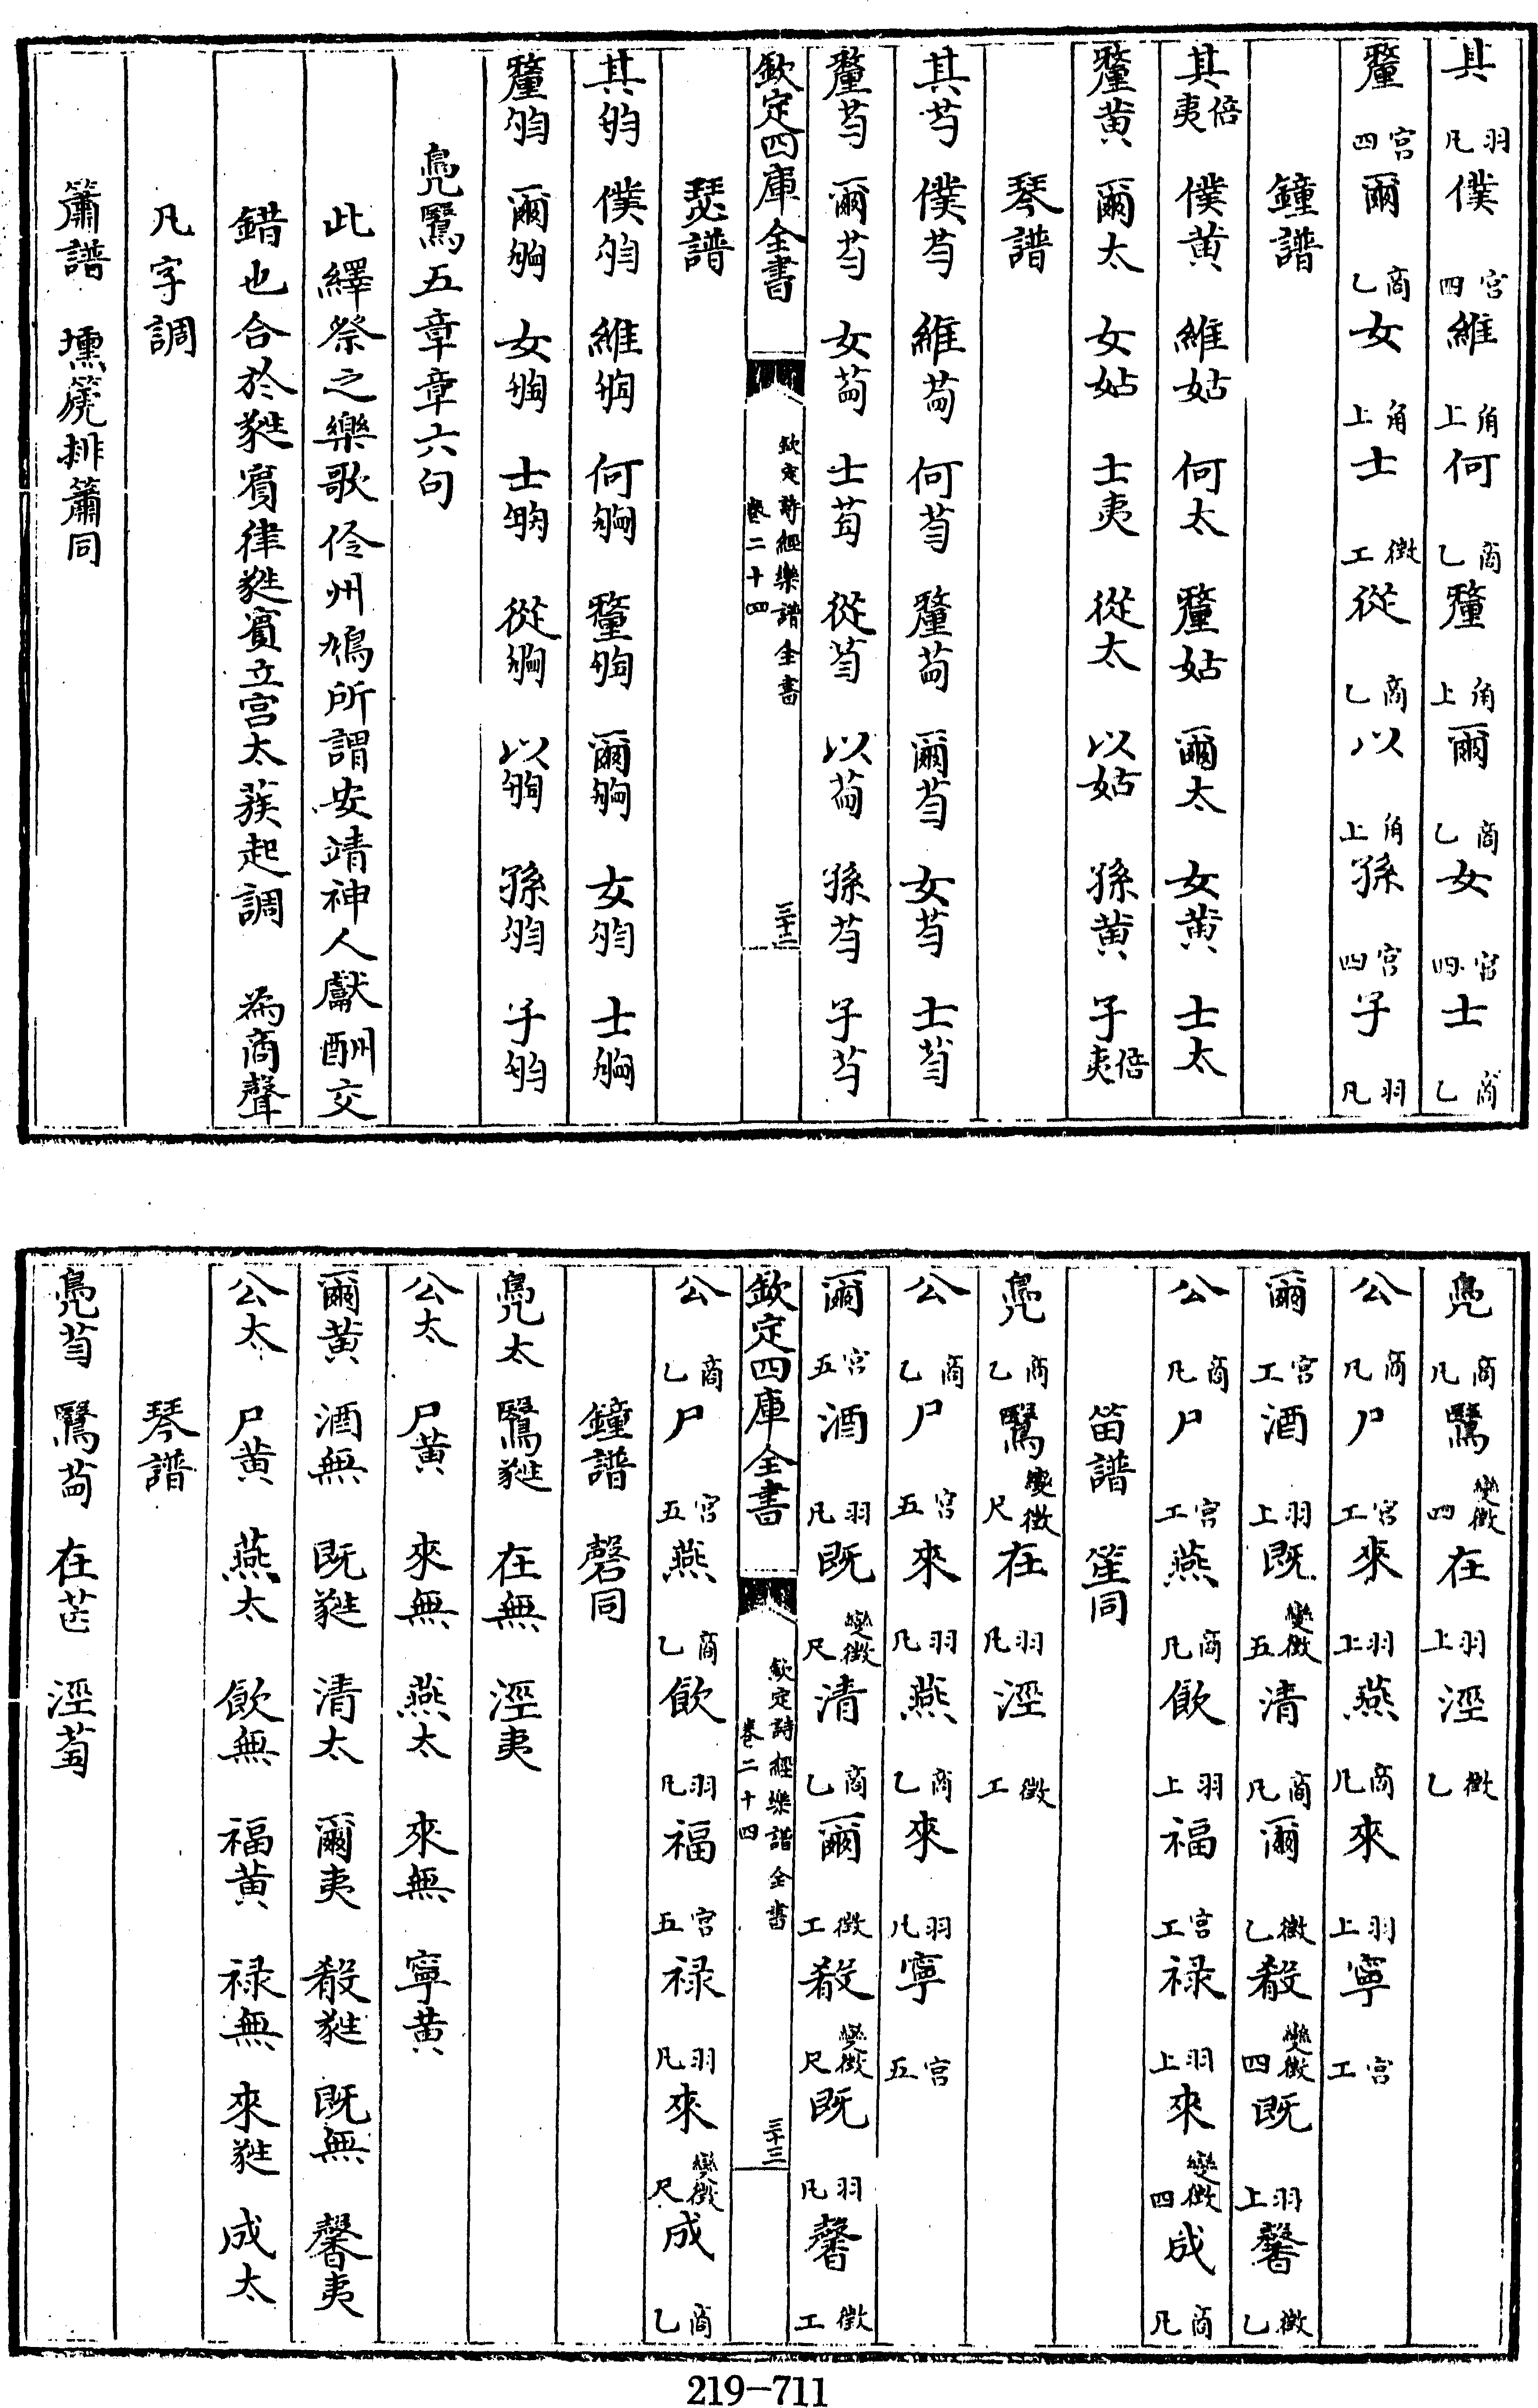 其羽凡 僕宮四 維角上 何商乙 釐角上 爾商乙 女宮四 士商乙
釐宮四 爾商乙 女角上 士徵工 從商乙 以角上 孫宮四 子羽凡
鐘譜
其倍夷 僕黃 維姑 何太 釐姑 爾太 女黃 士太
釐黃 爾太 女姑 士夷 從太 以姑 孫黃 子倍夷
琴譜
其 僕 維 何 釐 爾 女 士
釐 爾 女 士 從 以 孫 子
欽定四庫全書
欽定詩經樂譜全書
卷二十四
三十二
瑟譜
其 僕 維 何 釐 爾 女 士
釐 爾 女 士 從 以 孫 子
鳧鷖五章章六句
此繹祭之樂歌伶州鳩所謂安靖神人獻酬交
錯也合於蕤賓律蕤賓立宮太蔟起調 為商聲
凡字調
簫譜 壎篪排簫同
鳧商凡 鷖變徵四 在羽上 涇徵乙
公商凡 尸宮工 來羽上 燕商凡 來羽上 寧宮工
爾宮工 酒羽上 既變徵五 清商凡 爾徵乙 殽變徵四 既羽上 馨徵乙
公商凡 尸宮工 燕商凡 飲羽上 福宮工 祿羽上 來變徵四 成商凡
笛譜 笙同
鳧商乙 鷖變徵尺 在羽凡 涇徵工
公商乙 尸宮五 來羽凡 燕商乙 來羽凡 寧宮五
爾宮五 酒羽凡 既變徵尺 清商乙 爾徵工 殽變徵尺 既羽凡 馨徵工
欽定四庫全書
欽定詩經樂譜全書
卷二十四
三十三
公商乙 尸宮五 燕商乙 飲羽凡 福宮五 祿羽凡 來變徵尺 成商乙
鐘譜 磬同
鳧太 鷖蕤 在無 涇夷
公太 尸黃 來無 燕太 來無 寧黃
爾黃 酒無 既蕤 清太 爾夷 殽蕤 既無 馨夷
公太 尸黃 燕太 飲無 福黃 祿無 來蕤 成太
琴譜
鳧 鷖 在 涇
219-711